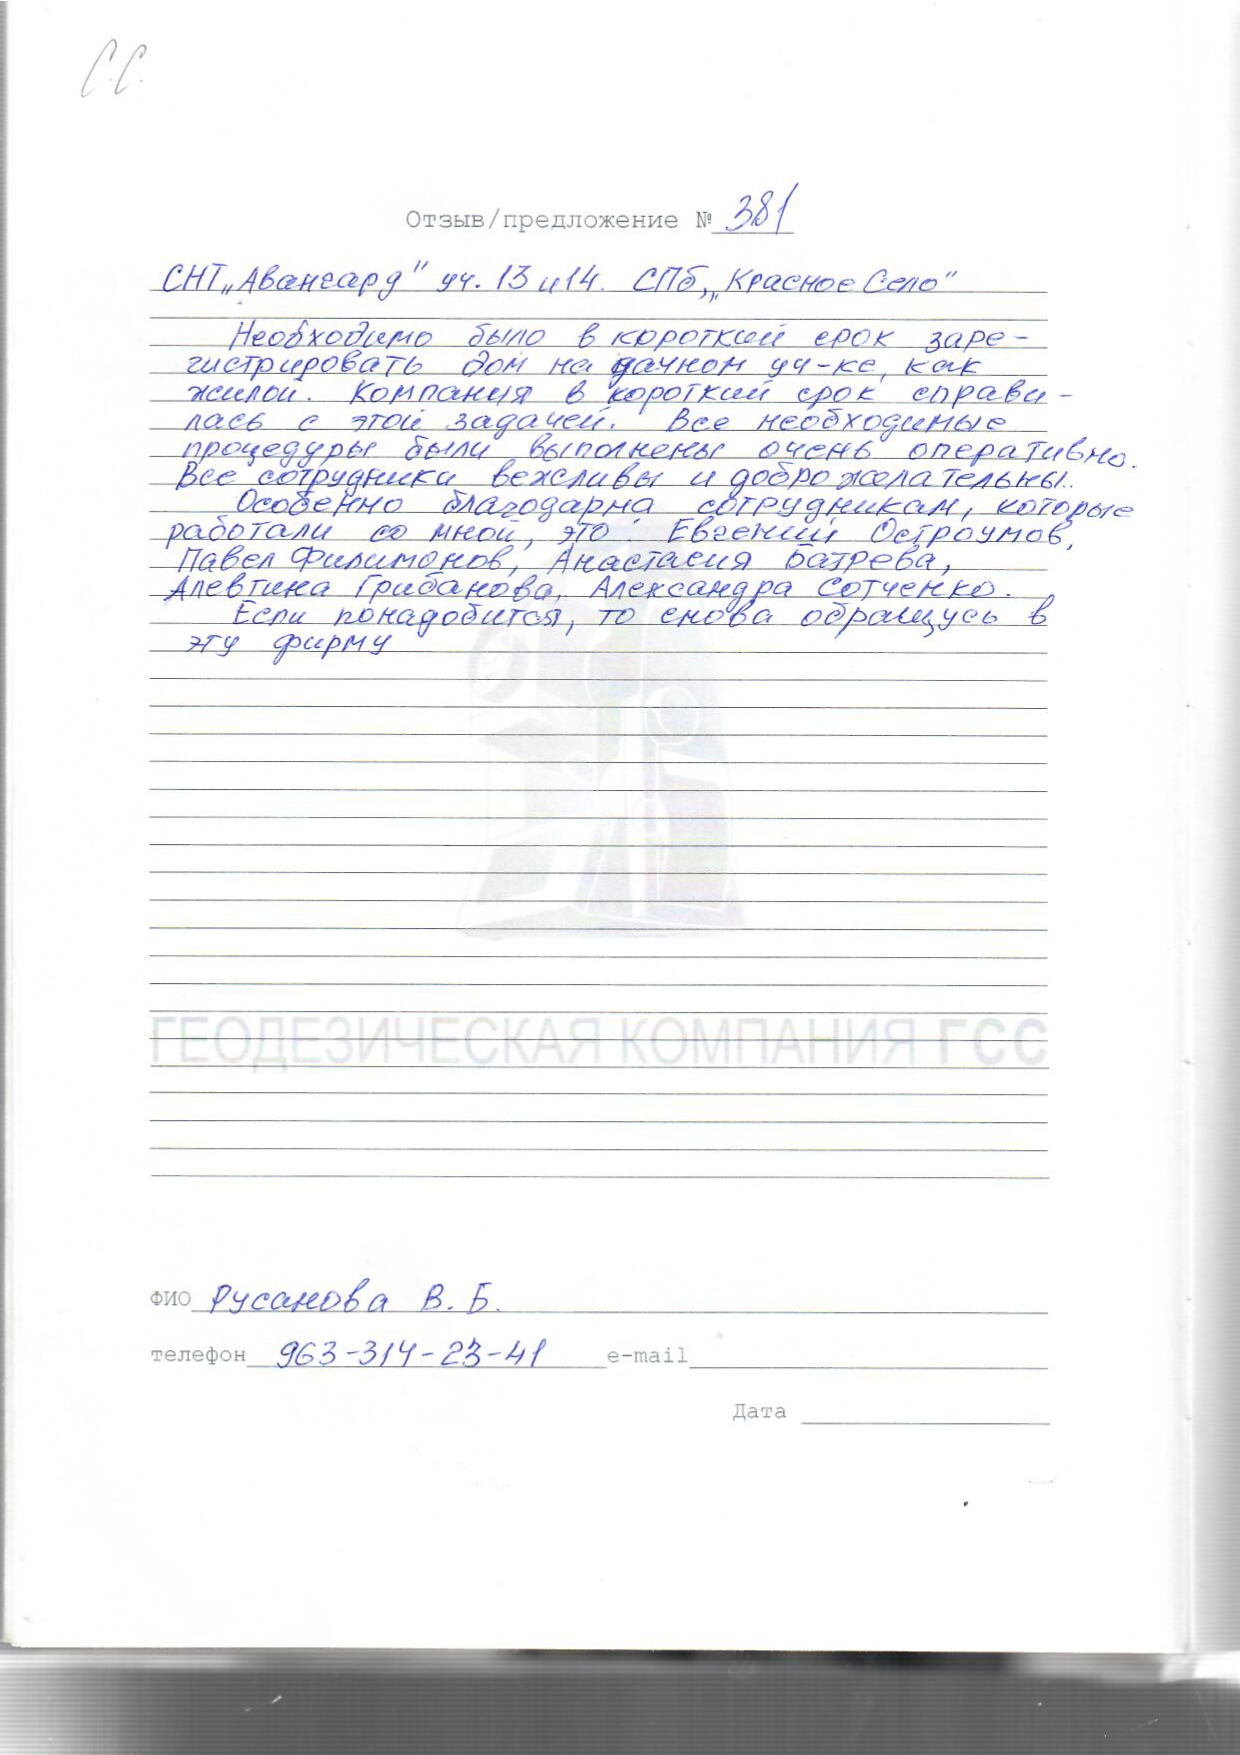 С.С.
Отзыв/предложение № 381
СНТ „Авангард" уч. 13 и 14. СПб, „Красное Село"
Необходимо было в короткий срок заре-
гистрировать дом на дачном уч-ке, как
жилой. Компания в короткий срок справи-
лась с этой задачей. Все необходимые
процедуры были выполнены очень оперативно.
Все сотрудники вежливы и доброжелательны.
Особенно благодарна сотрудникам, которые
работали со мной, это: Евгений Остроумов,
Павел Филимонов, Анастасия Батрева,
Алевтина Грибанова, Александра Сотченко.
Если понадобится, то снова обращусь в
эту фирму
ГЕОДЕЗИЧЕСКАЯ КОМПАНИЯ ГСС
ФИО Русанова В. Б.
телефон 963-314-23-41 e-mail
Дата